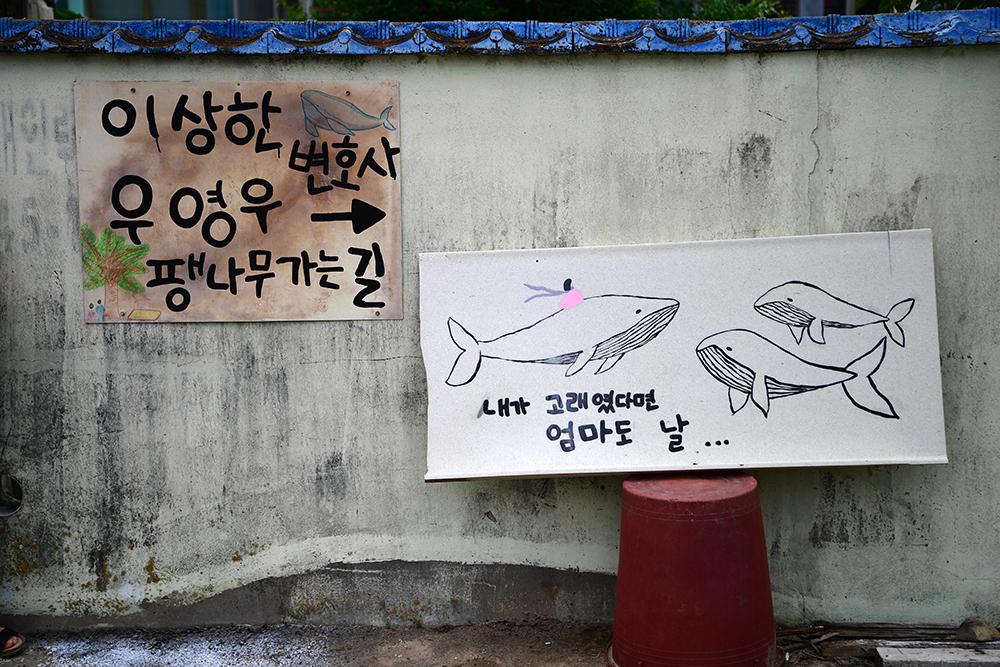 이상한
변호사
우영우
팽나무가는길
내가 고래였다면
엄마도 날...